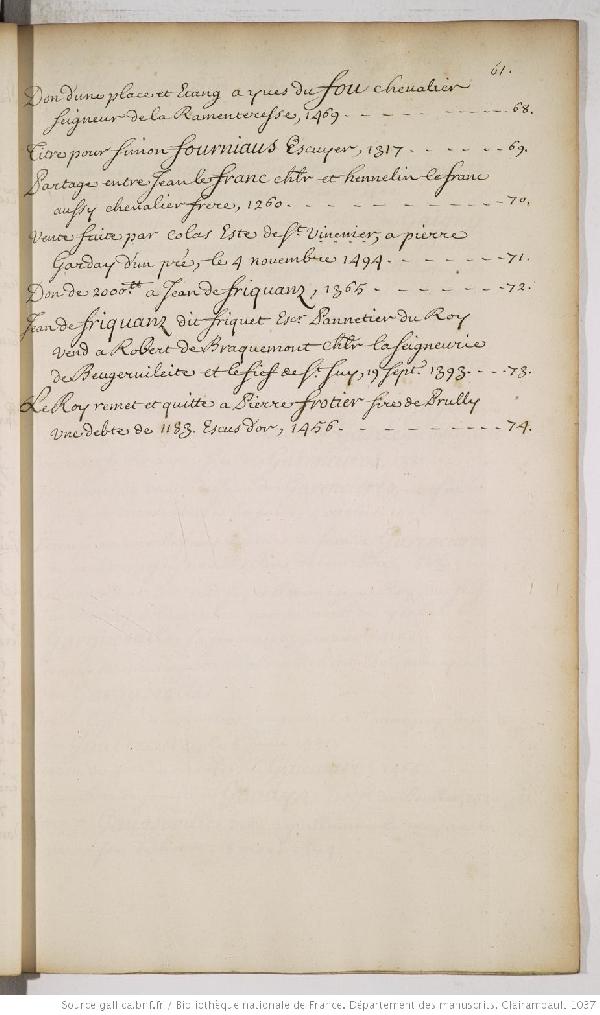 61.
Don d'une place et Etang a yves du fou chevalier
seigneur de la Ramenteresse, 1469 - - - - - - - - - 68.
Titre pour simon fourniaus Escuyer, 1317 - - - - - - 69.
Partage entre Jean le franc chlr et hennelin le franc
aussy chevalier frere, 1260. - - - - - - - - - - - 70.
Vente faite par colas Este de St. Vinenier, a pierre
Garday d'un pré, le 4 novembre 1494. - - - - - - 71.
Don de 2000tt a Jean de friquanz, 1365 - - - - - - - 72.
Jean de friquanz dit friquet Esr. Pannetier du Roy
vend a Robert de Braquemont chlr la seigneurie
de et le fief de St. 19 Sept. 1393. - - - 73.
Le Roy remet et quitte a Pierre frotier sire de Prully
une debte de 1183. Escus d'or, 1456. - - - - - - - - 74.
Source gallica.bnf.fr / Bibliothèque nationale de France. Département des manuscrits. Clairambault. 1037